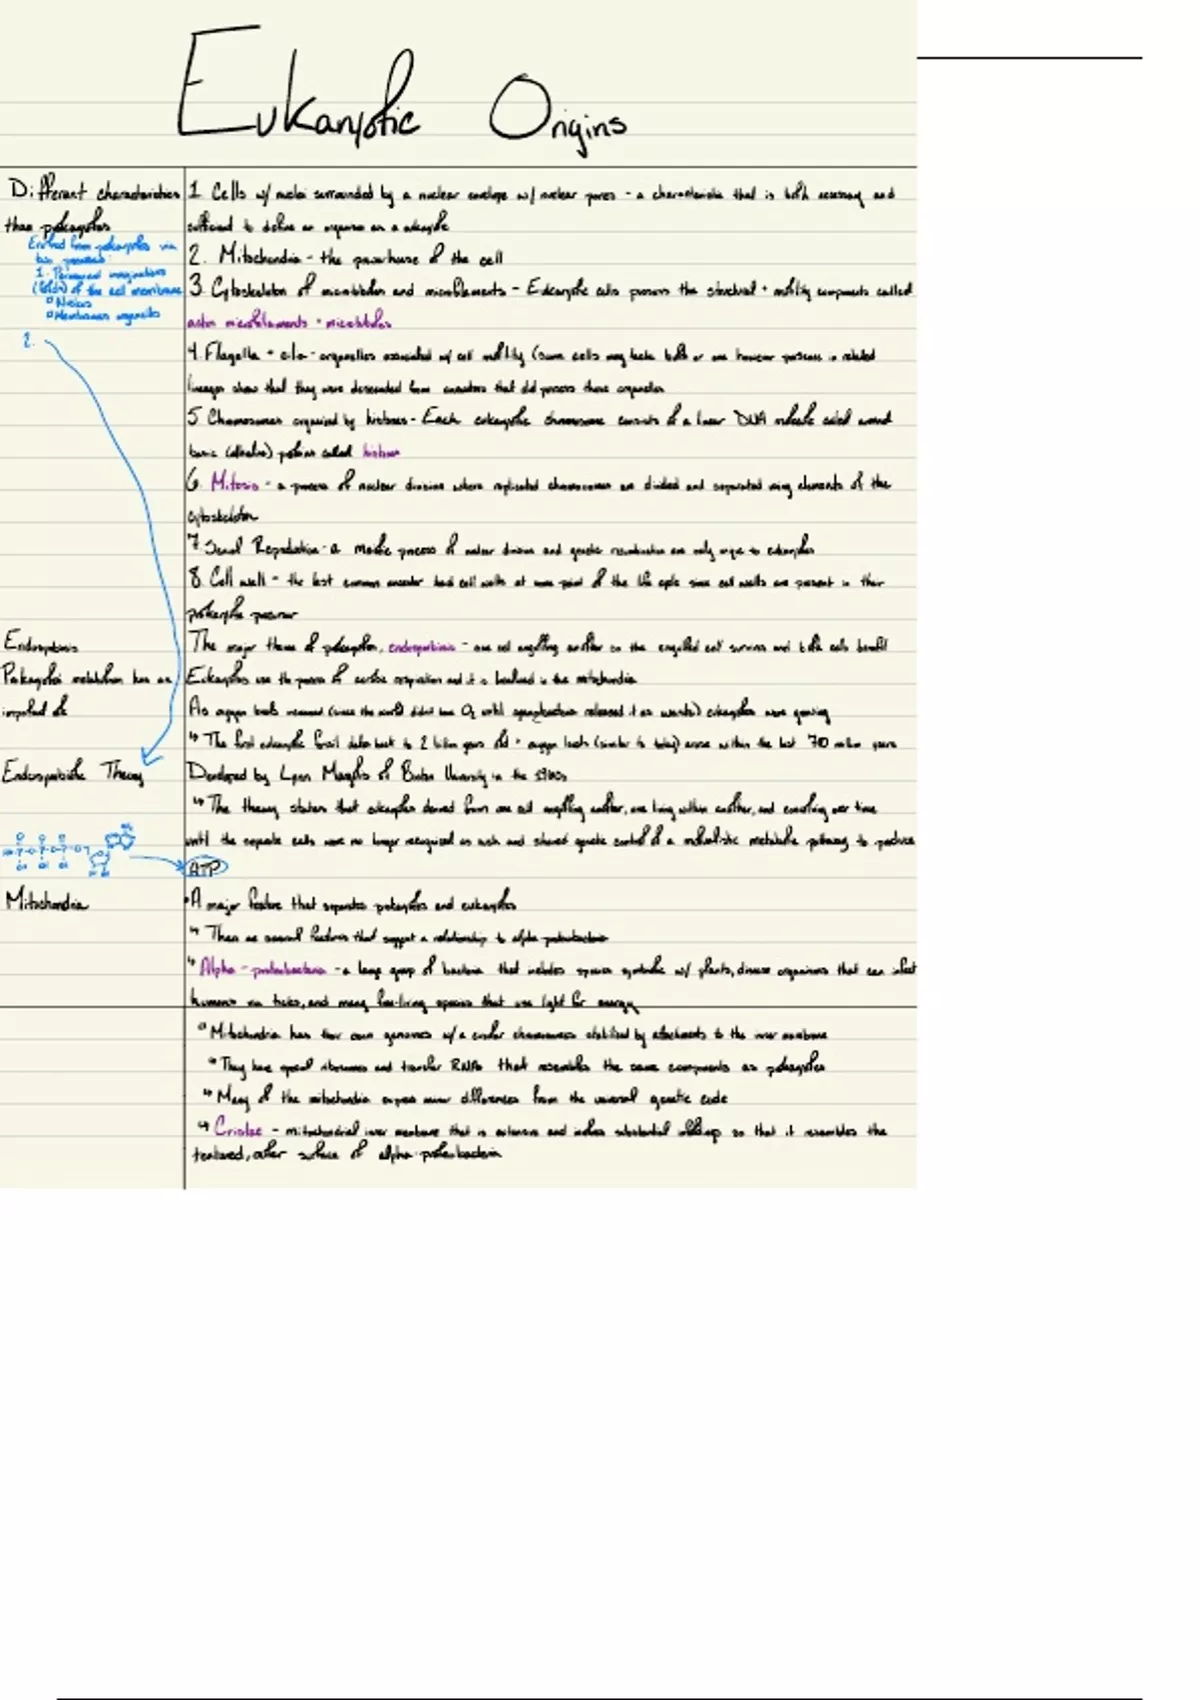 Eukaryotic Origins
Different characteristics
than prokaryotes
Evolved from prokaryotes via
two processes:
1. Permanent invaginations
(folds) of the cell membrane
Nucleus
Membranous organelles
2.
1. Cells w/ nuclei surrounded by a nuclear envelope w/ nuclear pores - a characteristic that is both necessary and
sufficient to define an organism as a eukaryote
2. Mitochondria - the powerhouse of the cell
3. Cytoskeleton of microtubules and microfilaments - Eukaryotic cells possess the structural + motility components called
actin microfilaments + microtubules
4. Flagella + cilia - organelles associated w/ cell motility (some cells may lack both or one however persons in related
lineages show that they were descended from ancestors that did possess these organelles
5. Chromosomes organized by histones - Each eukaryotic chromosome consists of a linear DNA molecule coiled around
basic (alkaline) proteins called histones
6. Mitosis - a process of nuclear division where replicated chromosomes are divided and separated using elements of the
cytoskeleton
7. Sexual Reproduction - a meiotic process of nuclear division and genetic recombination are only unique to eukaryotes
8. Cell wall - the last common ancestor had cell walls at some point of the life cycle since cell walls are present in their
prokaryotic precursor
Endosymbiosis
The major theme of prokaryotes, endosymbiosis - one cell engulfing another so the engulfed cell survives and both cells benefit
Prokaryotic metabolism has an
impact of
Eukaryotes use the process of aerobic respiration and it is localized in the mitochondria
As oxygen levels increased (since the world didn't have O₂ until cyanobacteria released it as waste) eukaryotes were growing
↳ The first eukaryotic fossil dates back to 2 billion years old + oxygen levels (similar to today) arose within the last 700 million years
Endosymbiotic Theory
Developed by Lynn Margulis of Boston University in the 1960s
↳ The theory states that eukaryotes derived from one cell engulfing another, one living within another, and evolving over time
until the separate cells were no longer recognized as such and shared genetic control of a mutualistic metabolic pathway to produce
ATP
Mitochondria
A major feature that separates prokaryotes and eukaryotes
↳ There are several features that suggest a relationship to alpha-proteobacteria
↳ Alpha-proteobacteria - a large group of bacteria that includes species symbiotic w/ plants, disease organisms that can infect
humans via ticks, and many free-living species that use light for energy
Mitochondria has their own genomes w/ a circular chromosomes stabilized by attachments to the inner membrane
They have special ribosomes and transfer RNAs that resembles the same components as prokaryotes
↳ Many of the mitochondria express minor differences from the universal genetic code
↳ Cristae - mitochondrial inner membrane that is extensive and involves substantial infoldings so that it resembles the
textured, outer surface of alpha-proteobacteria